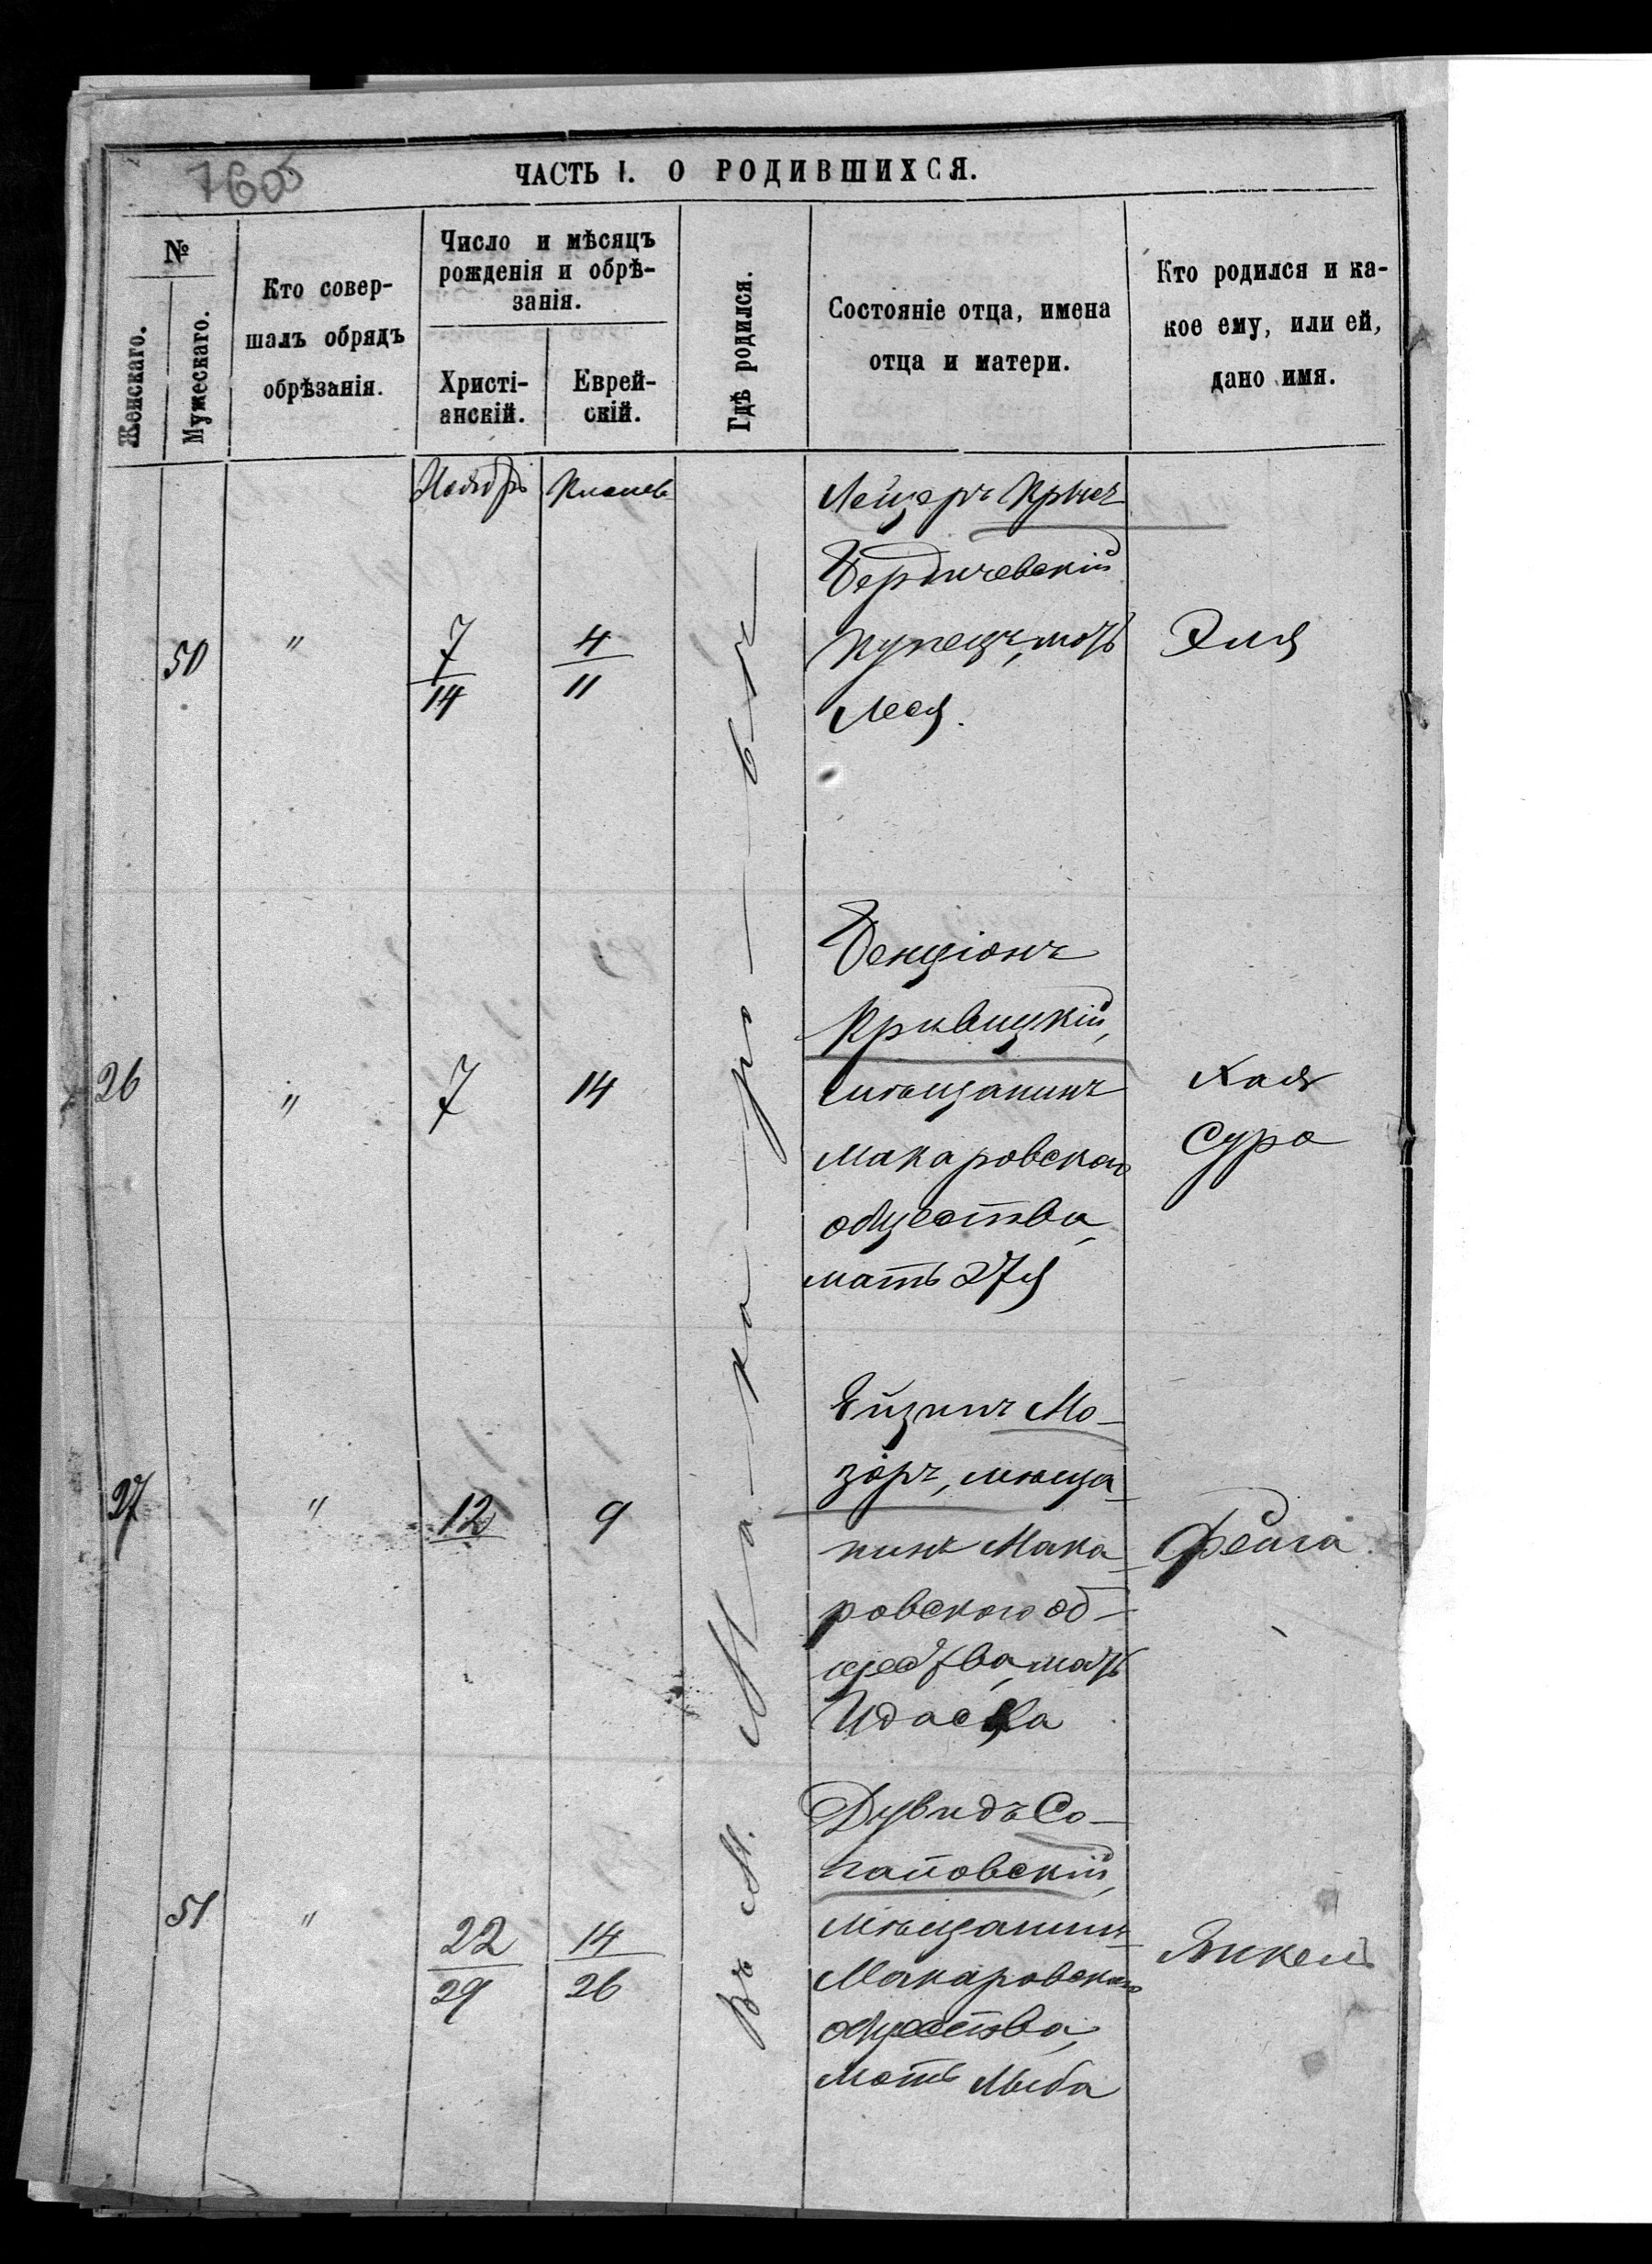 7605
ЧАСТЬ I. О РОДИВШИХСЯ.
№
Женскаго.
Мужескаго.
Кто совер-
шалъ обрядъ
обрѣзанія.
Число и мѣсяцъ
рожденія и обрѣ-
занія.
Христі-
анскій.
Еврей-
скій.
Гдѣ родился.
Состояніе отца, имена
отца и матери.
Кто родился и ка-
кое ему, или ей,
дано имя.
Ноябрь
Кислевъ
Въ М. Макаровѣ
50
"
7
14
4
11
Лейзеръ
Бердичевскій
купецъ, мать
Лея.
Эля
26
"
7
14
Бенціонъ
Кривицкій,
мѣщанинъ
Макаровскаго
общества,
мать Этя
Хая
Сура
27
"
12
9
Айзикъ Мо-
зоръ, мѣща-
нинъ Мака-
ровского об-
щества, мать
Идаска
Фейга
51
"
22
29
14
26
Дувидъ Со-
гановскій,
мѣщанинъ
Макаровскаго
общества,
мать Лыба
Янкель